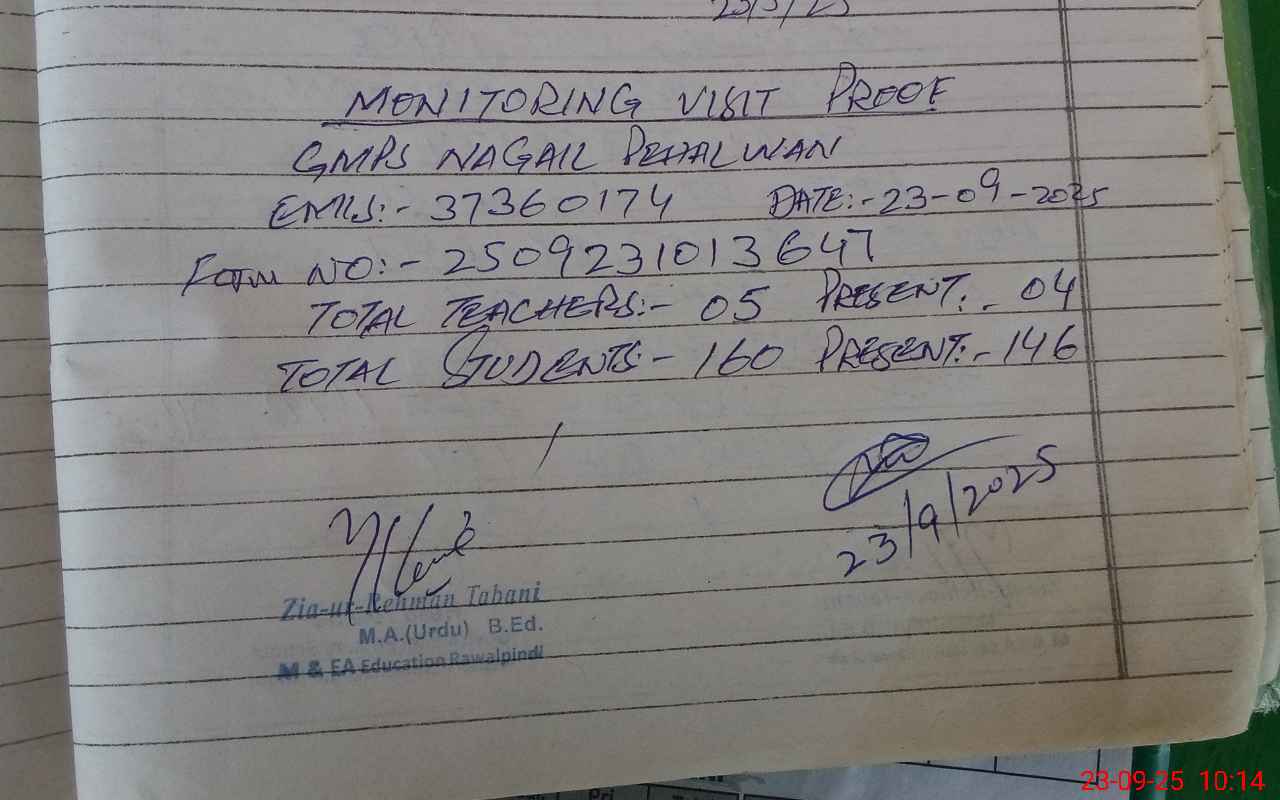 23/5/25
MONITORING VISIT PROOF
GMPS NAGAIL PEHALWAN
EMIS:- 37360174 DATE:- 23-09-2025
Form NO:- 2509231013647
TOTAL TEACHERS:- 05 PRESENT:- 04
TOTAL STUDENTS:- 160 PRESENT:- 146
23/9/2025
Zia-ur-Rehman Tabani
M.A.(Urdu) B.Ed.
M & EA Education Rawalpindi
23-09-25 10:14